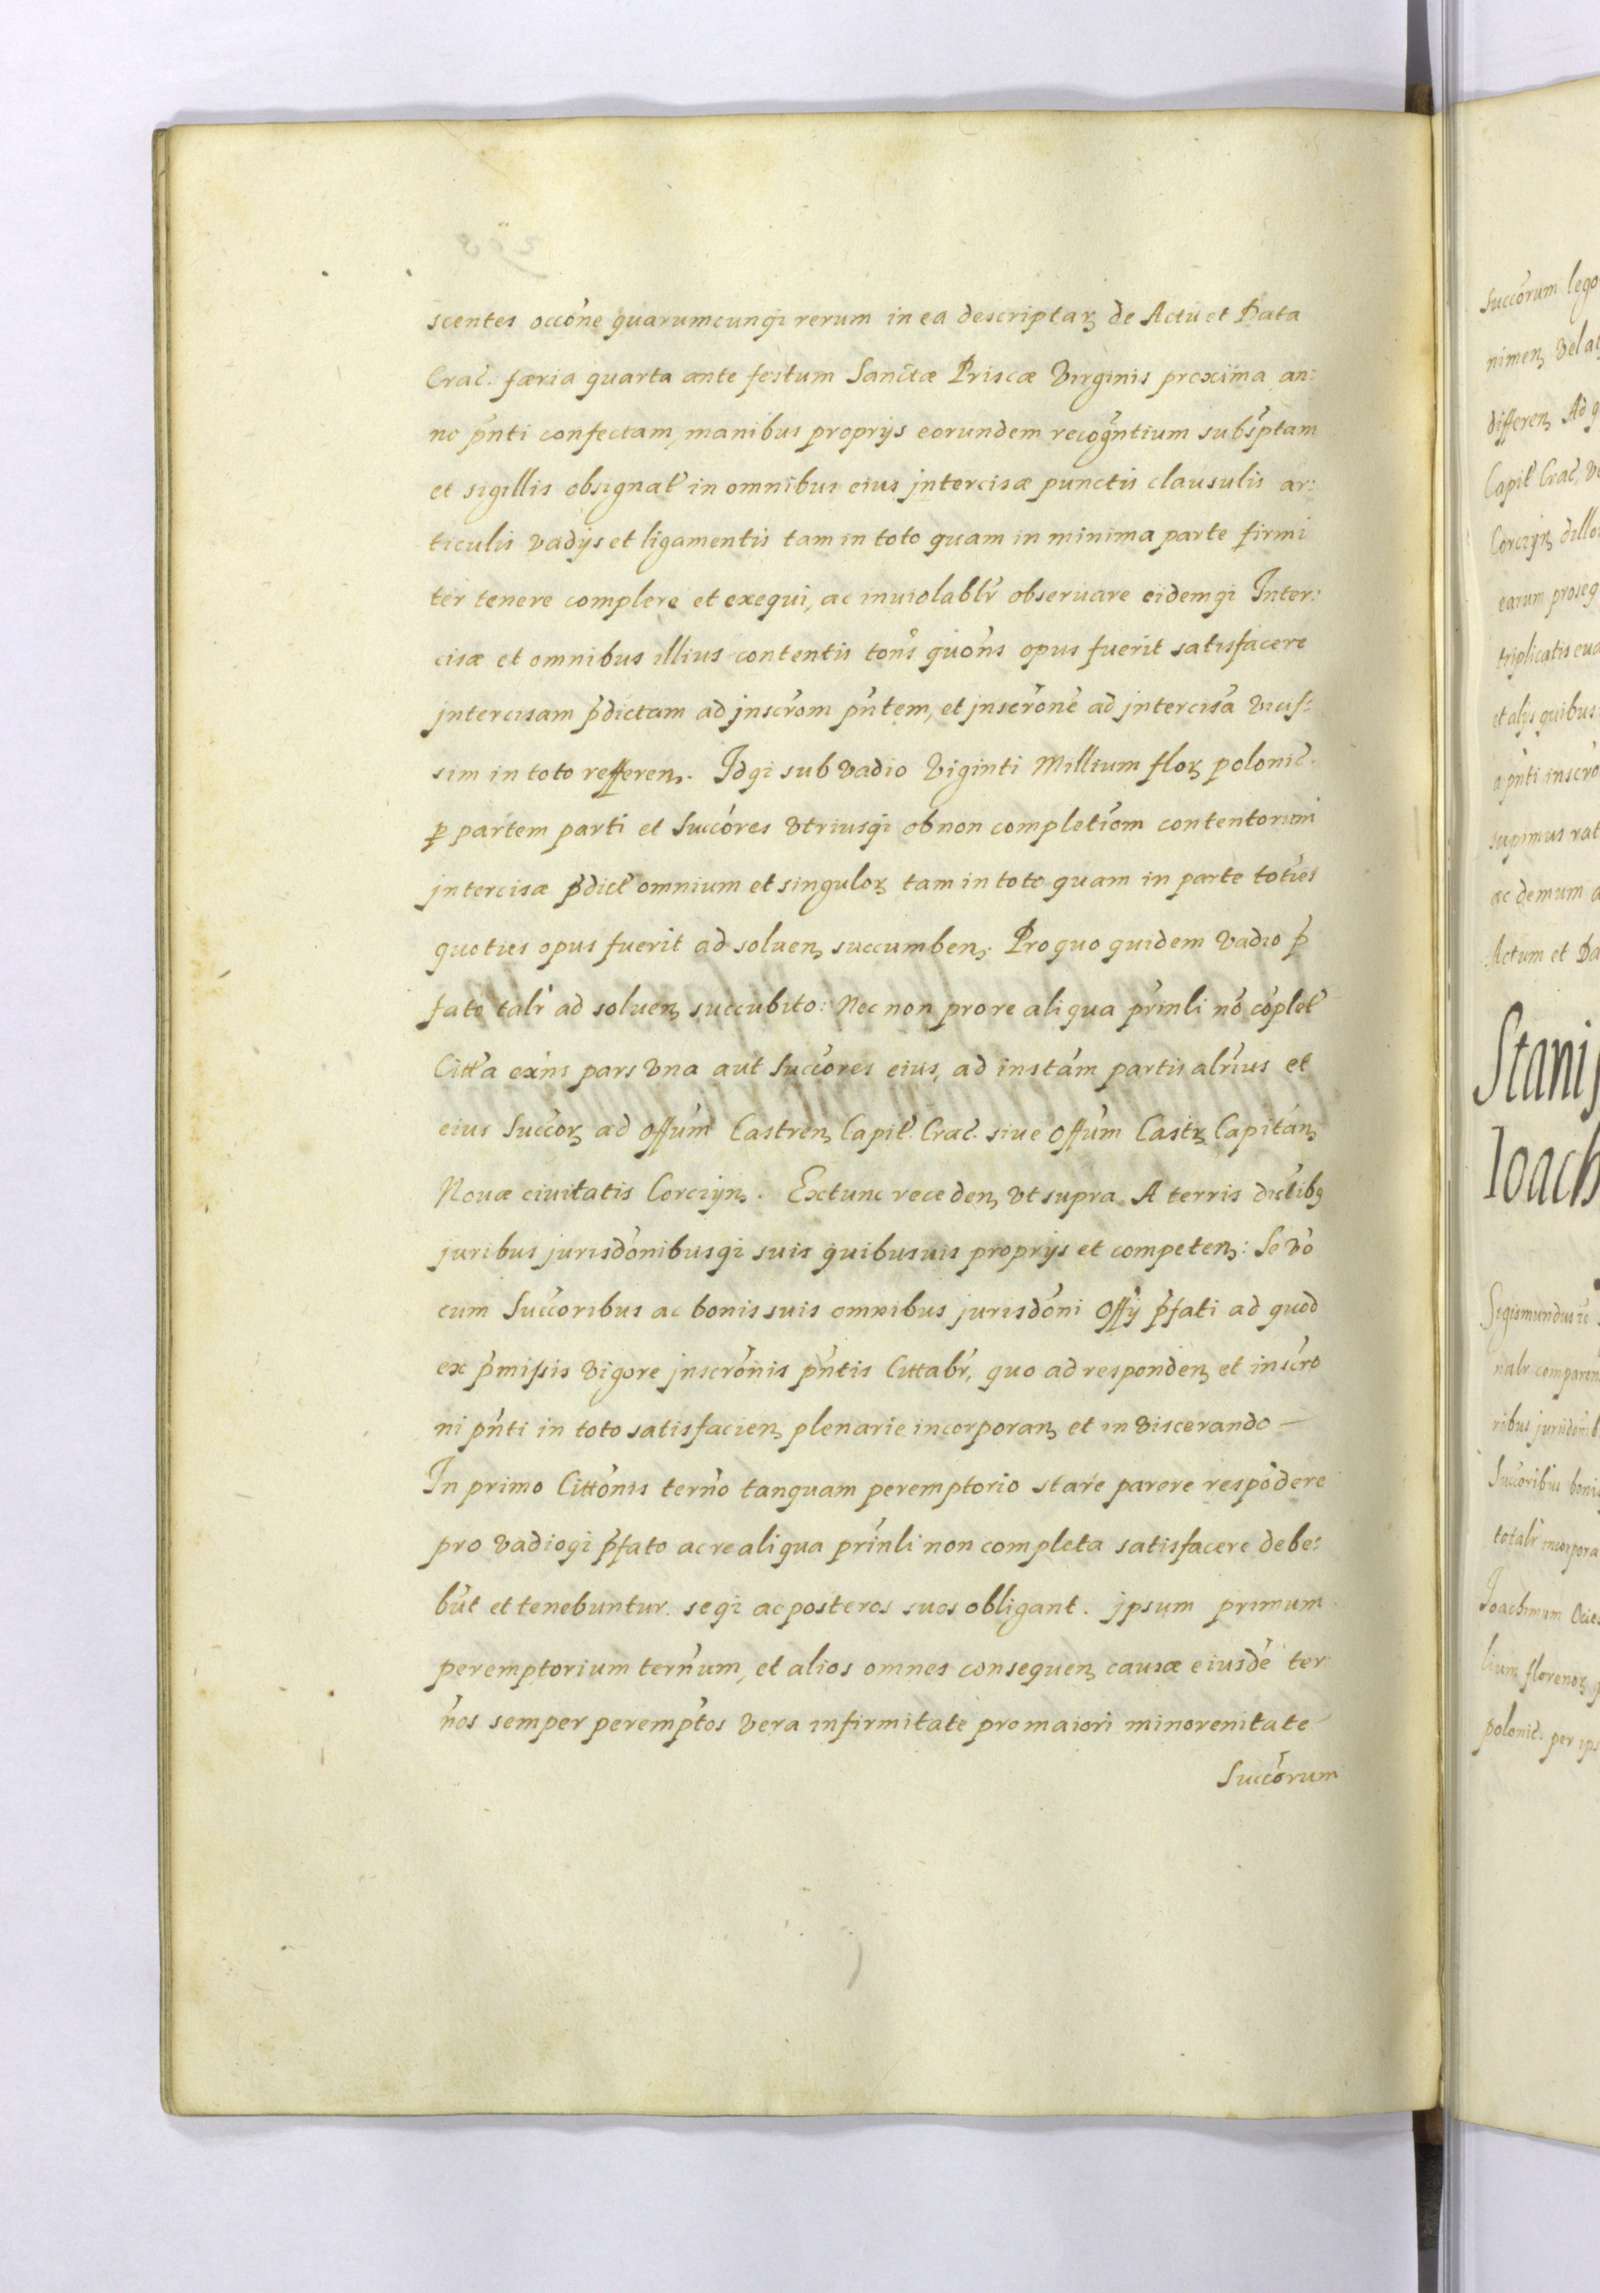 scentes occōne quarumcunqȝ rerum in ea descriptaꝝ de Actu et Data
Crac̄. færia quarta ante festum Sanctæ Priscæ Virginis proxima an:
no p̄nti confectam, manibus proprijs eorundem recogn̄tium subsp̄tam
et sigillis obsignat̄ in omnibus eius jntercisæ punctis clausulis ar:
ticulis vadijs et ligamentis tam in toto quam in minima parte firmi
ter tenere complere et exequi, ac inuiolablr̄ obseruare eidemqȝ Inter:
cisæ et omnibus illius contentis ton̄s quōns opus fuerit satisfacere
jntercisam p̄dictam ad jnscr̄om pn̄tem, et jnscr̄one ad jntercisā vicis:
sim in toto refferenꝫ. Idqȝ sub vadio viginti Millium floꝝ polonic̄.
ꝑ partem parti et succōres vtriusqȝ ob non completīom contentorum
jntercisæ p̄dict̄ omnium et singuloꝝ tam in toto quam in parte toties
quoties opus fuerit ad soluenꝫ succumbenꝫ. Pro quo quidem vadio p̄
fato talr̄ ad soluenꝫ succubito: Nec non pro re aliqua prīnli nō cōplet̄
Citt̄a exn̄s pars vna aut succōres eius, ad instām partis alr̄ius et
eius succōꝝ ad Offūm Castrenꝫ Capit̄. Crac̄. siue Offūm Castꝝ Capitānꝫ
Nouæ ciuitatis Corczynꝫ. Extunc recedenꝫ vt supra A terris dictibꝯ
juribus jurisdōnibusqȝ suis quibusuis proprijs et competenꝫ: Se vō
cum succōribus ac bonis suis omnibus jurisdōni Offȳ p̄fati ad quod
ex p̄missis vigore jnscrōnis pn̄tis Cittabr̄, quo ad respondenꝫ et inscrō
ni pn̄ti in toto satisfacienꝫ plenarie incorporanꝫ et inviscerando —
In primo Cittōnis tern̄o tanquam peremptorio stare parere respōdere
pro vadioqȝ p̄fato ac re aliqua prīnli non completa satisfacere debe:
būt et tenebuntur. seqȝ ac posteros suos obligant. jpsum primum
peremptorium tern̄um, et alios omnes consequenꝫ causæ eiusdē ter
n̄os semper perempt̄os vera infirmitate pro maiori minorenitate
Succōrum
succōrum
nimenꝫ
differenꝫ Ad
Capit̄ Crac̄
Corczynꝫ
earum
triplicatis
et alijs quibus
a pn̄ti
supimus
ac demum
Actum et
Stanis
Ioach
Sigismundus
nalr̄
ribus
succōribus
totalr̄
Joachimum
lium florenoꝝ
polonic̄. per